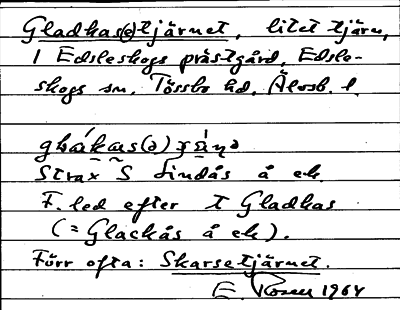 Gladkas(e)tjärnet, litet tjärn,
i Edsleskogs prästgård, Edsle-
skogs sn. Tössbo hd. Älvsb. l.
Strax S Lindås å ek.
F. led efter t Gladkas
(= Glackås å ek).
Förr ofta: Skarsetjärnet.
E. Rosen 1964